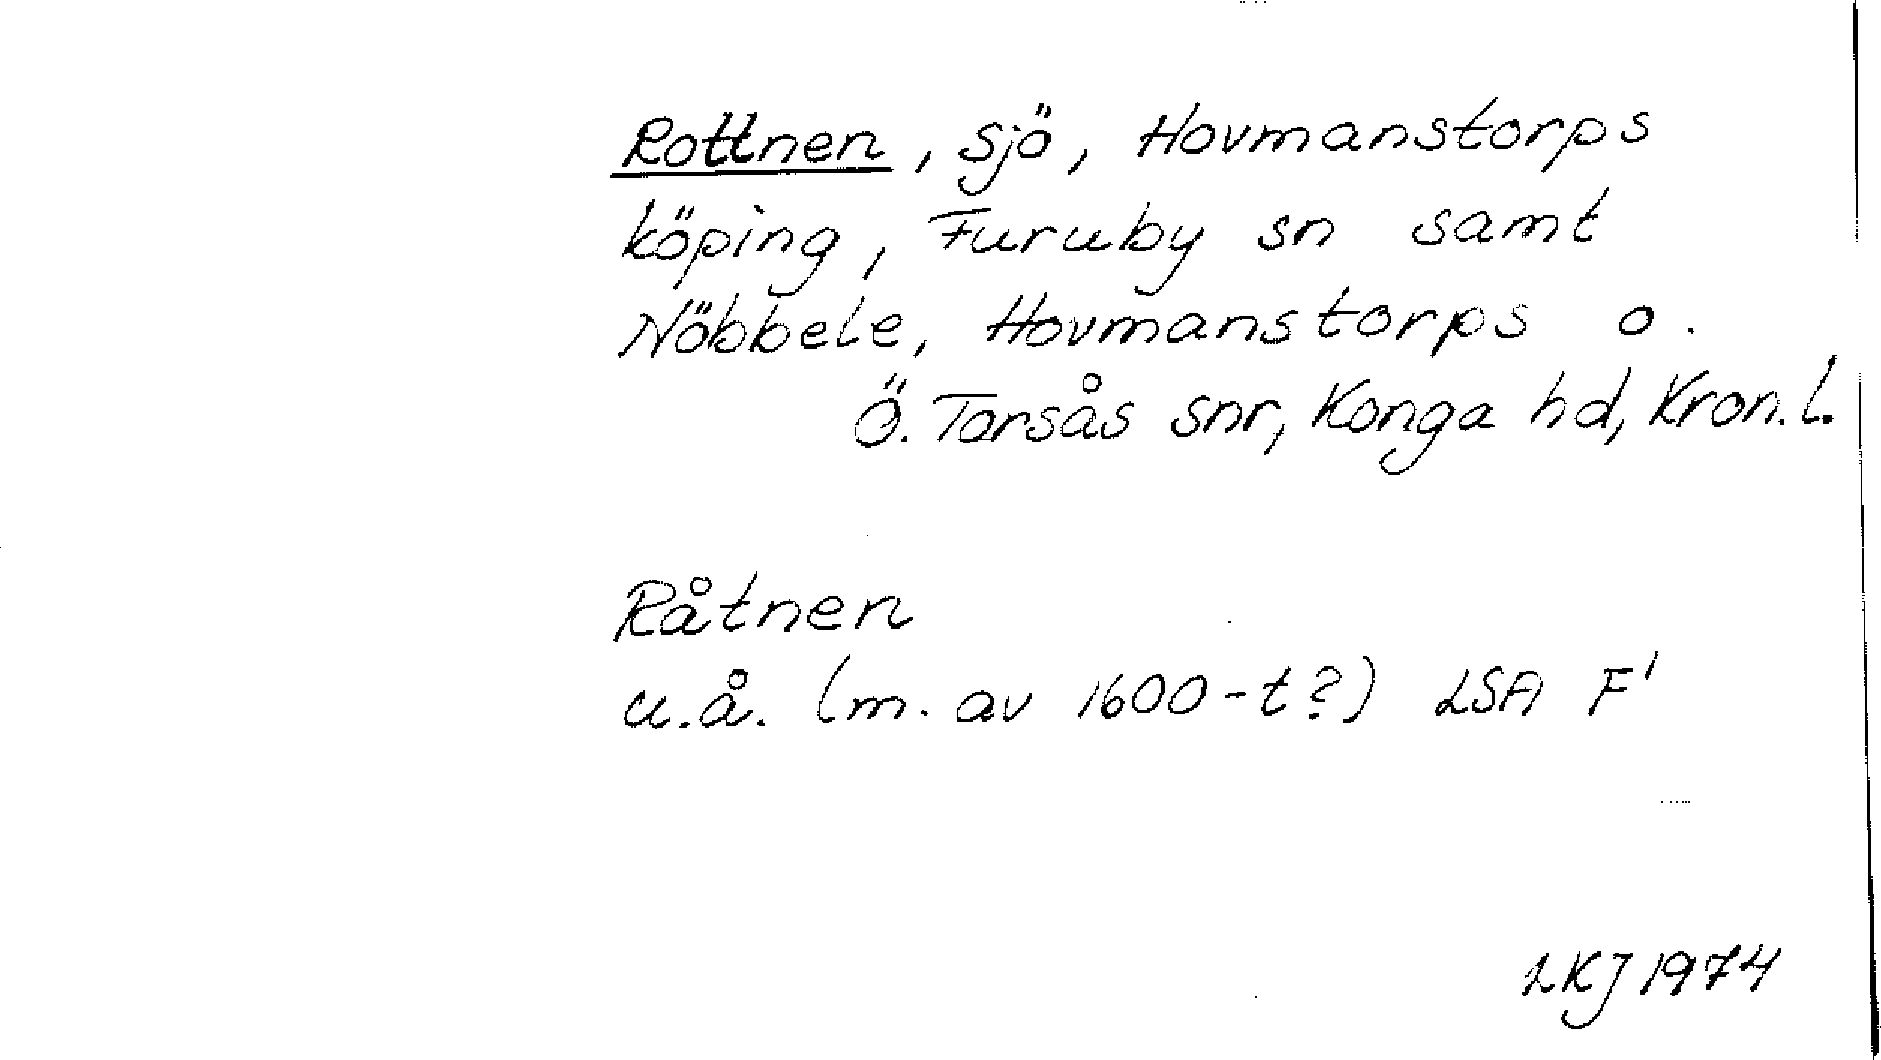 Rottnen, sjö, Hovmanstorps
köping, Furuby sn samt
Nöbbele, Hovmanstorps o.
Ö. Torsås snr, Konga hd, Kron. l.
Råtnen
u.å. (m. av 1600-t?) LSA F'
LKJ 1974